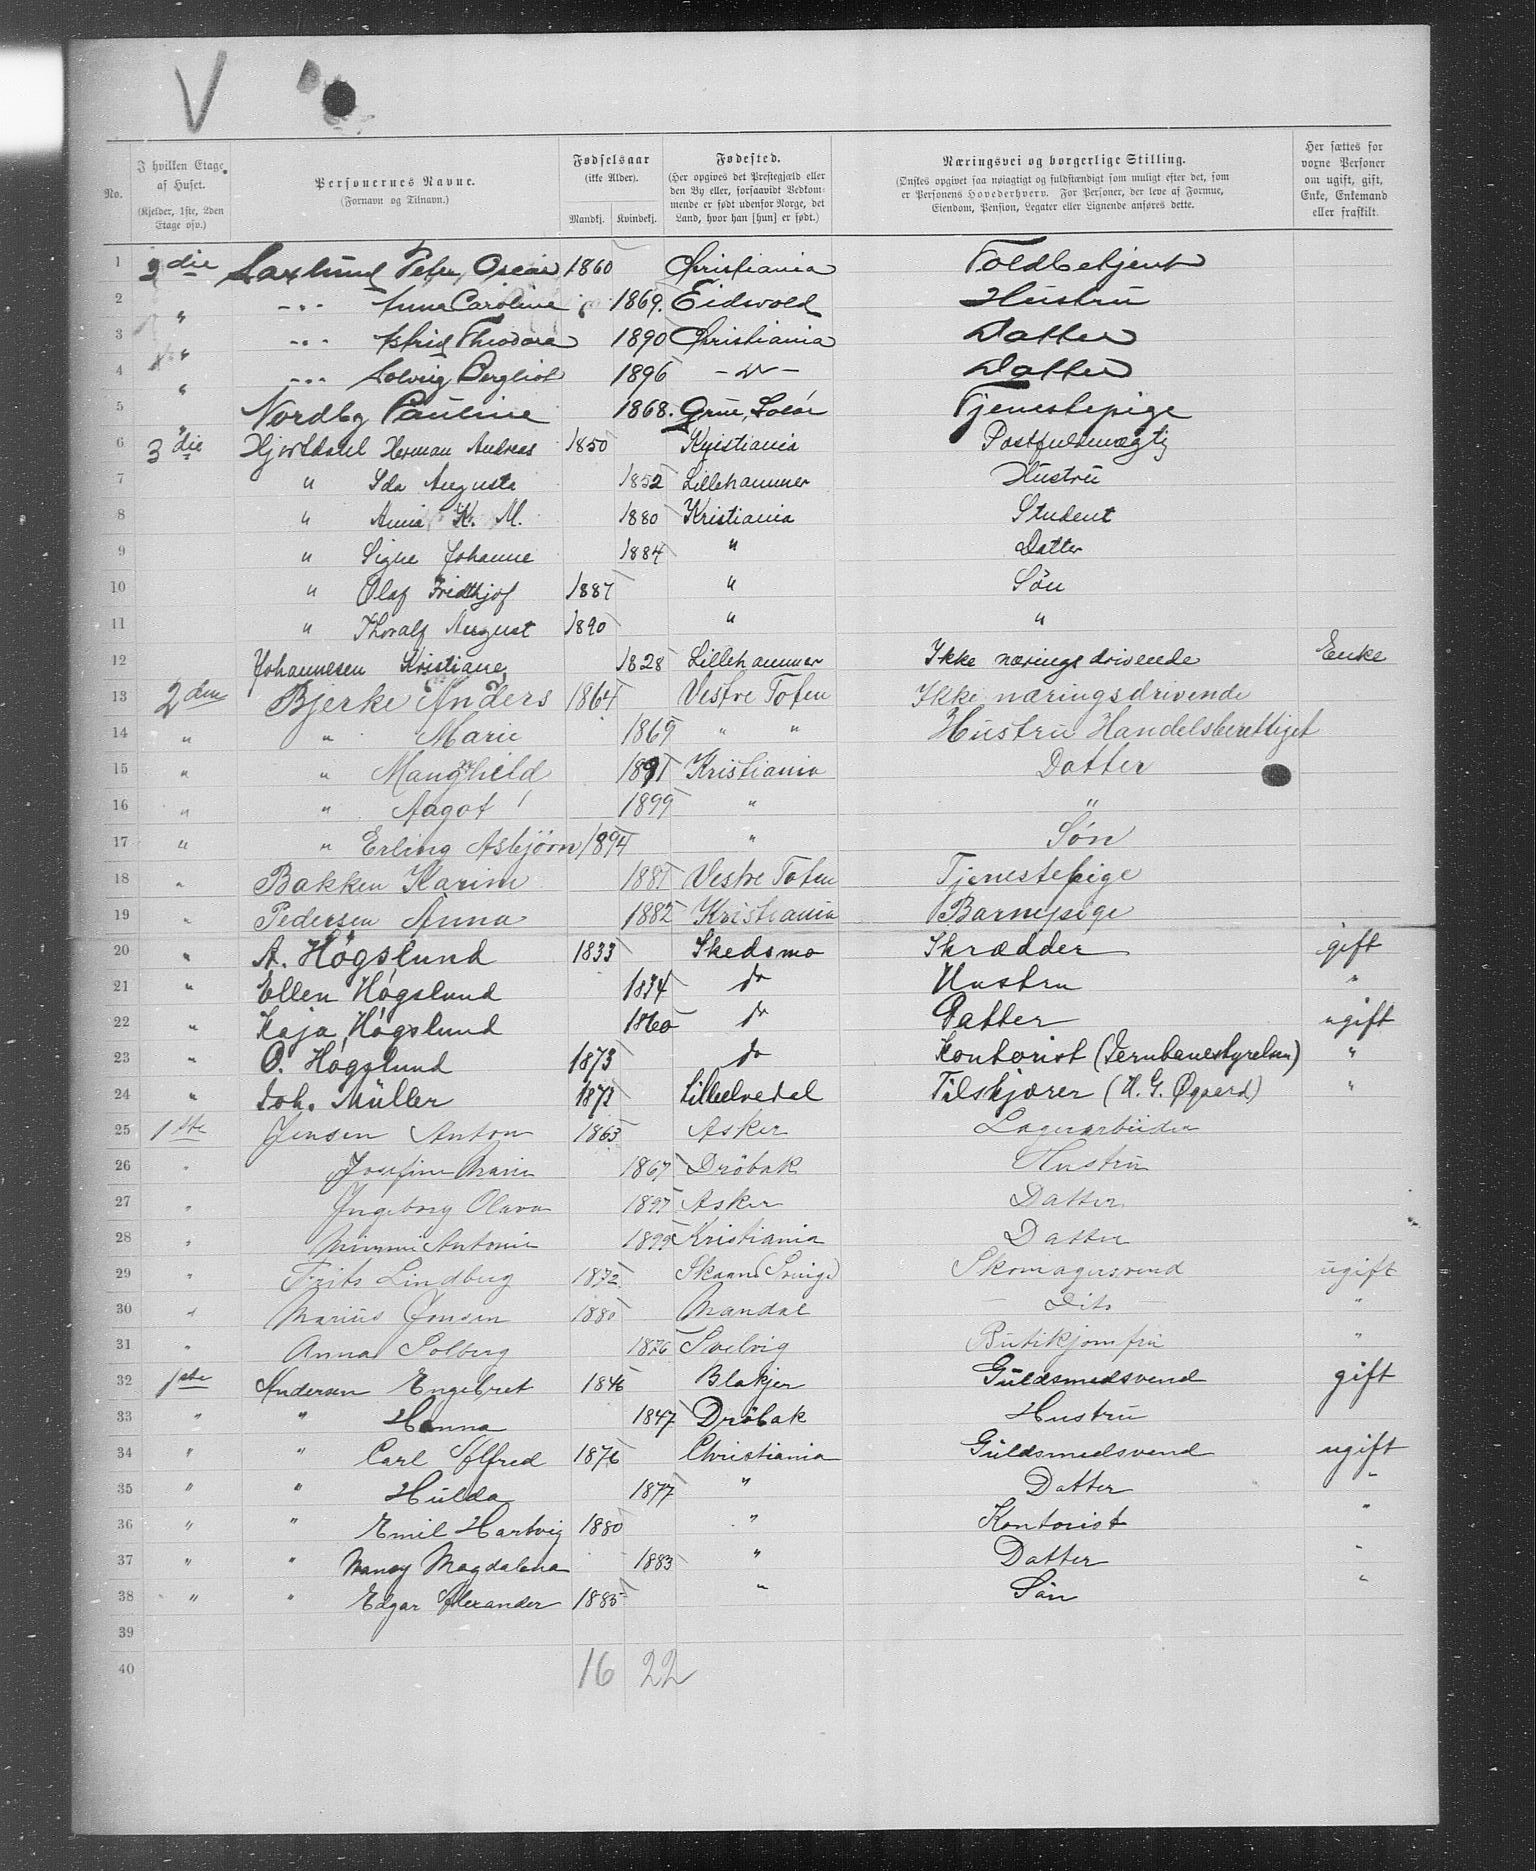 V
No. | I hvilken Etage af Huset. (Kjelder, 1ste, 2den Etage osv.) | Personernes Navne. (Fornavn og Tilnavn.) | Fødselsaar (ikke Alder). Mandkj. Kvindekj. | Fødested. (Her opgives det Prestegjæld eller den By eller, forsaavidt Vedkommende er født udenfor Norge, det Land, hvor han [hun] er født.) | Næringsvei og borgerlige Stilling. (Ønskes opgivet saa nøiagtigt og fuldstændigt som muligt efter det, som er Personens Hovederhverv. For Personer, der leve af Formue, Eiendom, Pension, Legater eller Lignende anføres dette. | Her sættes for voxne Personer om ugift, gift, Enke, Enkemand eller fraskilt.
1 3die Saxlund Peter Oscar 1860 Christiania Toldbetjent
2 " -"- Anna Caroline 1869. Eidsvold Hustru
3 " -"- Astrid Theodora 1890 Christiania Datter
4 " -"- Solveig Bergliot 1896 -"- Datter
5 " Nordby Pauline 1868. Grue, Solør Tjenestepige
6 3die Hjorthdahl Herman Andreas 1850 Kristiania Postfuldmægtig
7 " Ida Augusta 1852 Lillehammer Hustru
8 " Anna K. M. 1880 Kristiania Student
9 " Signe Johanne 1884 " Datter
10 " Olaf Fridthjof 1887 " Søn
11 " Thoralf August 1890 " "
12 Johannesen Kristiane 1828 Lillehammer Ikke næringsdrivende Enke
13 2den Bjerke Anders 1864 Vestre Toten Ikke næringsdrivende
14 " " Marie 1869 " " Hustru Handelsberettiget
15 " " Manghield 1891 Kristiania Datter
16 " " Aagot 1899 " "
17 " " Erling Asbjørn 1894 " Søn
18 " Bakken Karine 1881 Vestre Toten Tjenestepige
19 " Pedersen Anna 1882 Kristiania Barnepige
20 " A. Høgslund 1833 Skedsmo Skrædder gift
21 " Ellen Høgslund 1834 do Hustru "
22 " Kaja Høgslund 1860 do Datter ugift
23 " O. Høgslund 1873 do Kontorist (Jernbanestyrelsen) "
24 " Joh. Müller 1873 Lilleelvedal Tilskjærer (H. G. Øgaard) "
25 1ste Jensen Anton 1863 Asker Lagerarbeider
26 " Josefine Marie 1867 Drøbak Hustru
27 " Ingeborg Olava 1897 Asker Datter
28 " Mimmi Antonie 1899 Kristiania Datter
29 " Frits Lindberg 1872 Skaane Sverige Skomagersvend ugift
30 " Marius Jonsen 1880 Mandal — Dito — "
31 " Anna Solberg 1876 Svelvig Butikjomfru "
32 1ste Andersen Engebret 1846 Blakjer Guldsmedsvend gift
33 " " Hanna 1847 Drøbak Hustru
34 " " Carl Alfred 1876 Christiania Guldsmedsvend ugift
35 " " Hulda 1877 " Datter "
36 " " Emil Hartvig 1880 " Kontorist "
37 " " Nancy Magdalena 1883 " Datter "
38 " " Edgar Alexander 1885 " Søn "
39
40
16 22